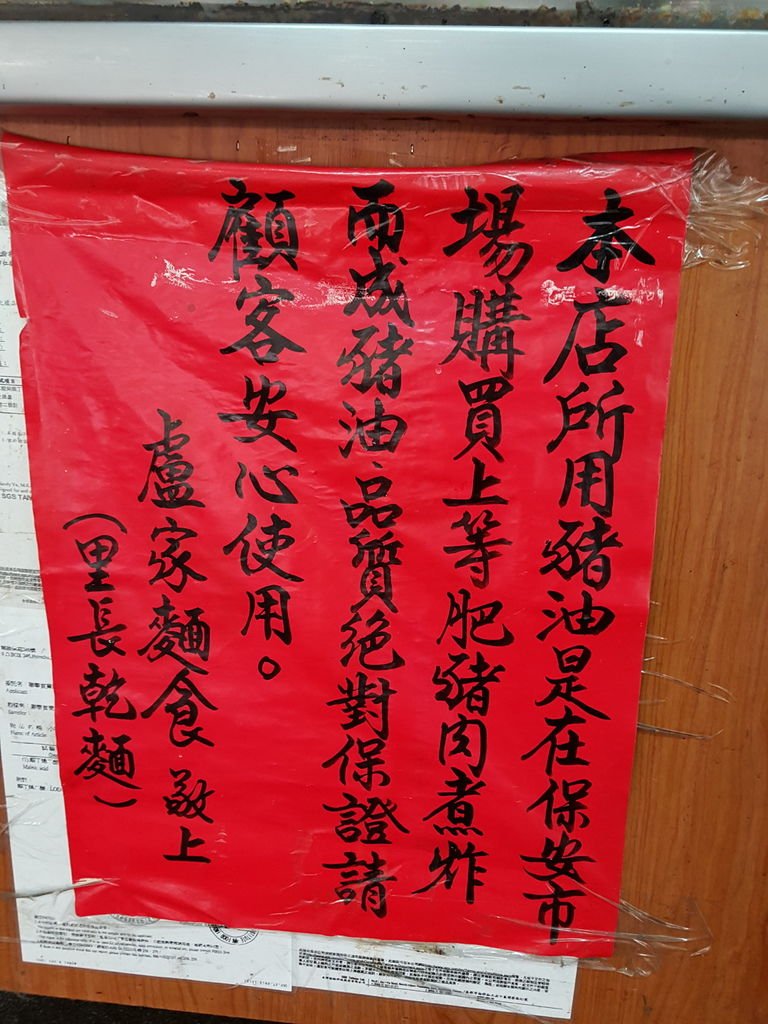 本店所用豬油是在保安市
場購買上等肥豬肉煮炸
而成豬油,品質絕對保證請
顧客安心使用。
盧家麵食 敬上
(里長乾麵)
SGS TAIW